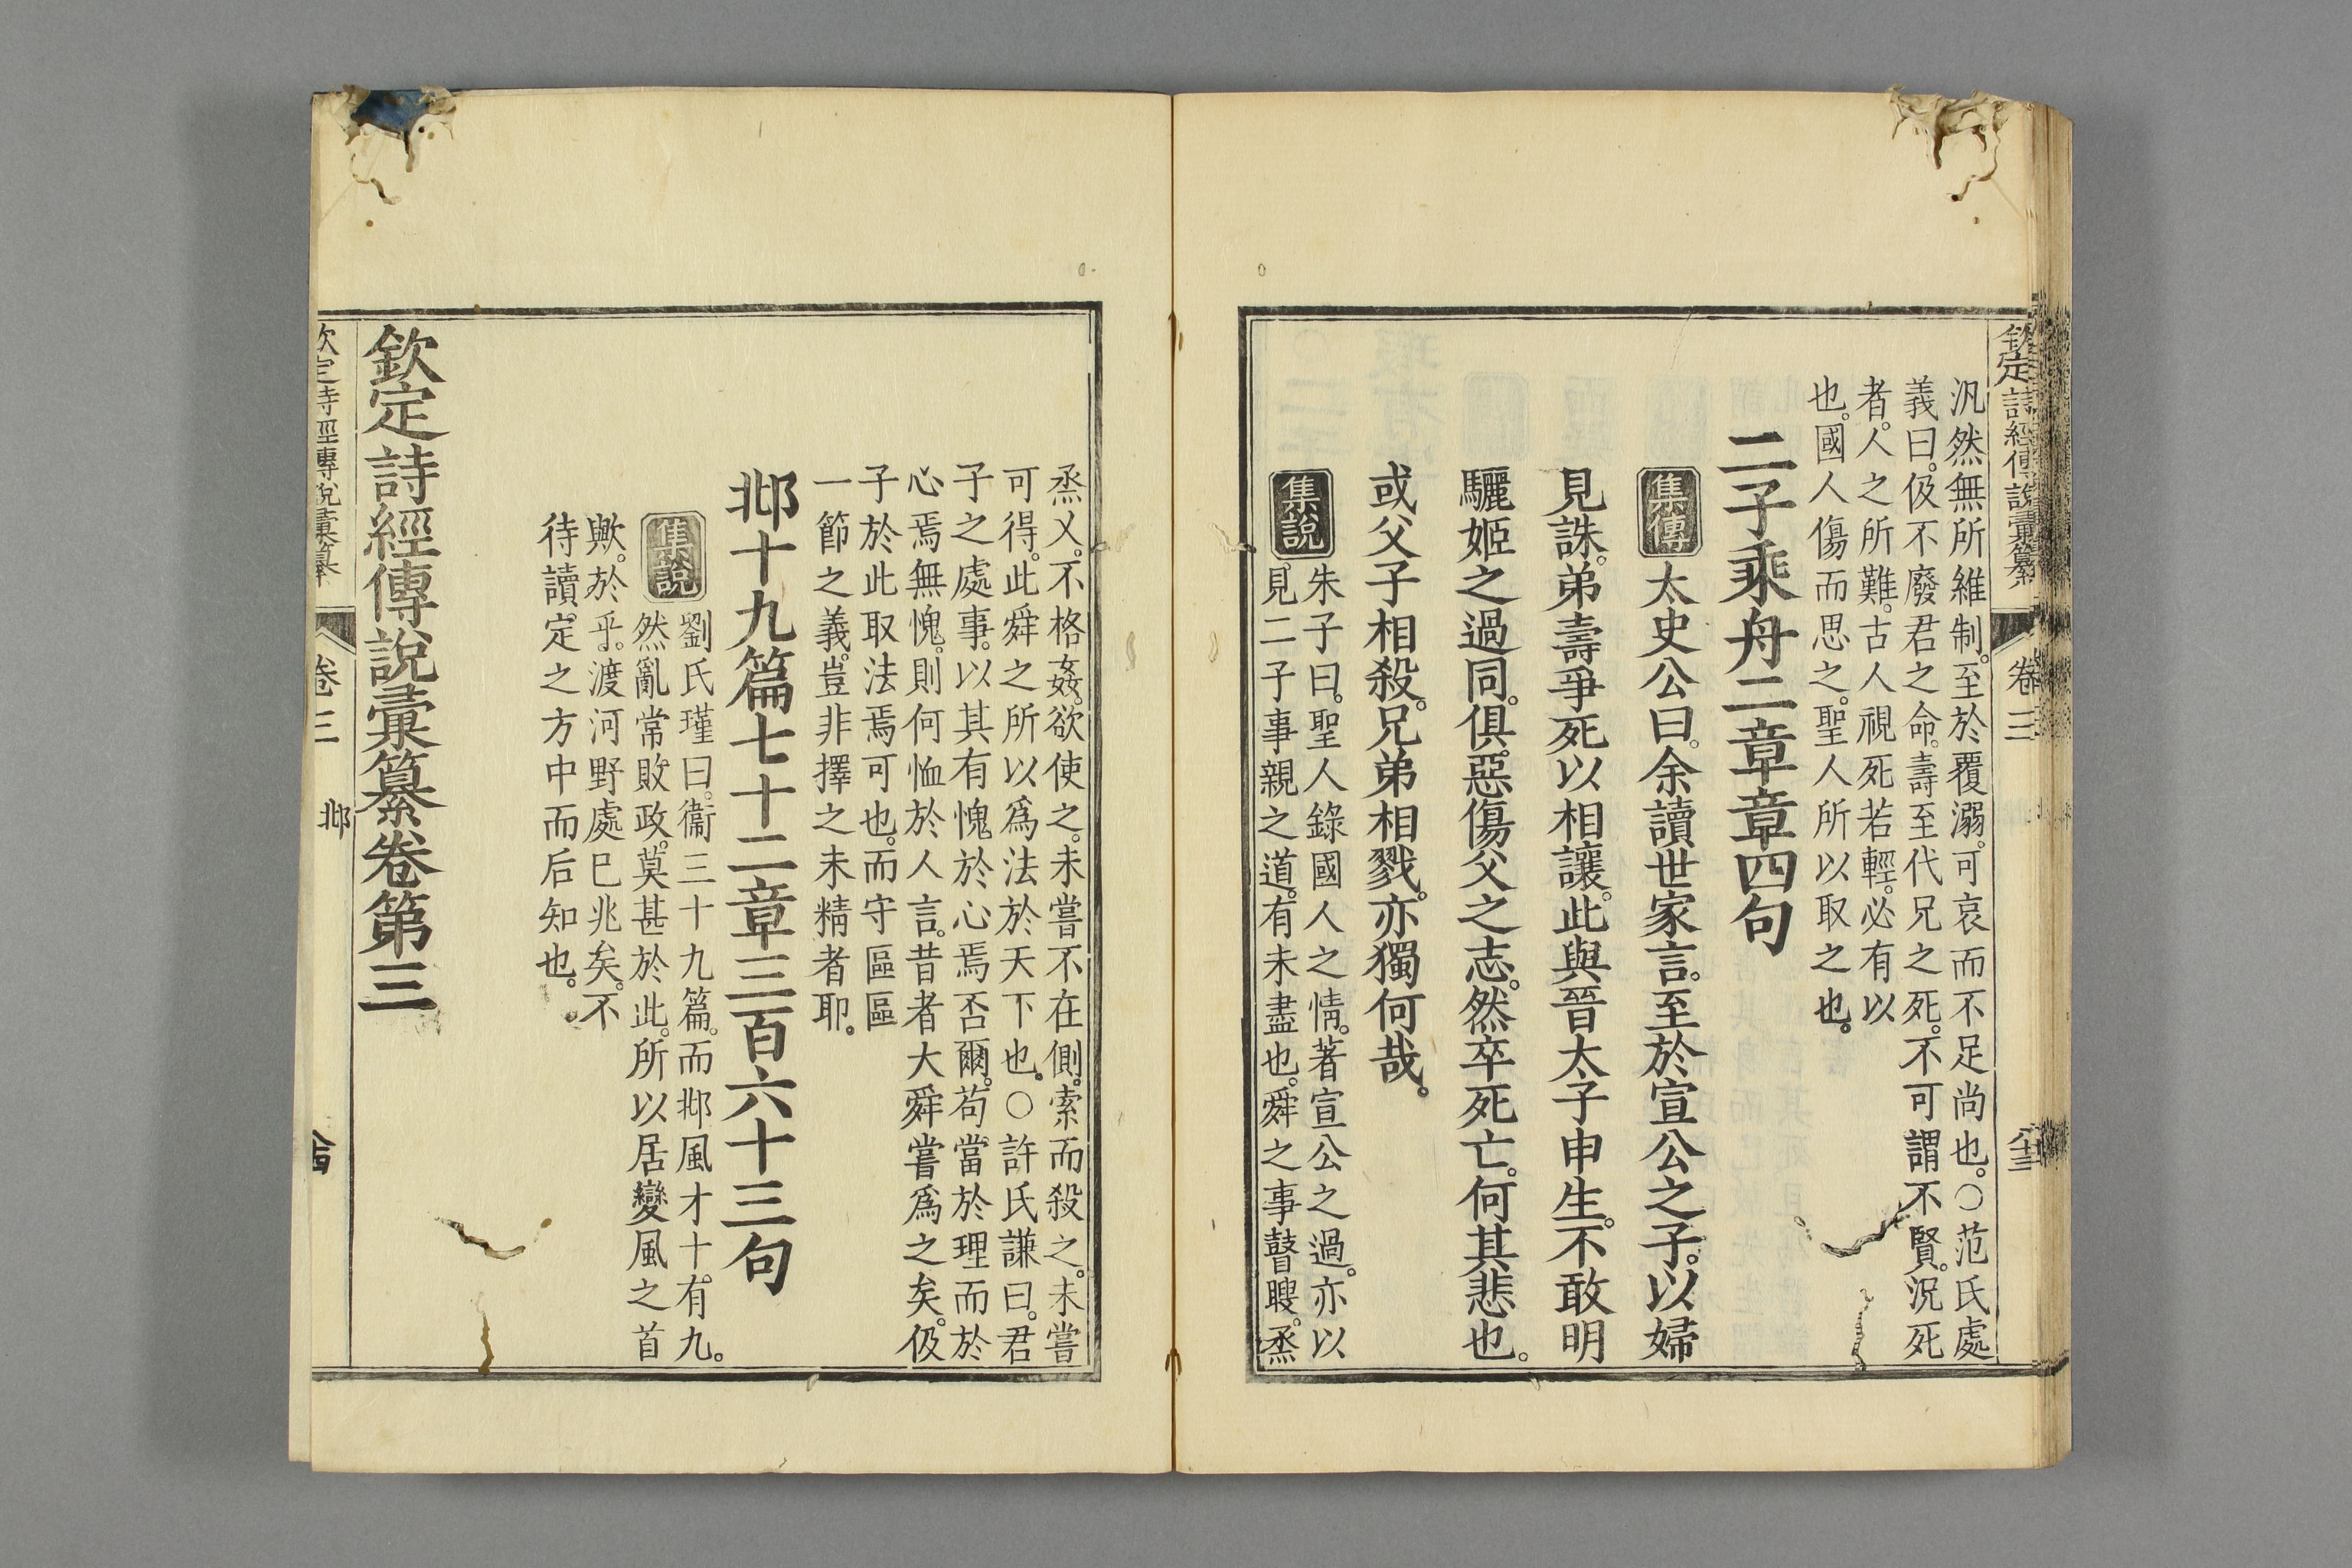 欽定詩經傳說彙纂 卷三
汎然無所維制。至於覆溺。可哀而不足尚也。○范氏處
義曰。伋不廢君之命。壽至代兄之死。不可謂不賢。況死
者。人之所難。古人視死若輕。必有以
也。國人傷而思之。聖人所以取之也。
二子乘舟二章章四句
集傳 太史公曰。余讀世家言。至於宣公之子。以婦
見誅。弟壽爭死以相讓。此與晉太子申生。不敢明
驪姬之過同。俱惡傷父之志。然卒死亡。何其悲也。
或父子相殺。兄弟相戮。亦獨何哉。
集說 朱子曰。聖人錄國人之情。著宣公之過。亦以
見二子事親之道。有未盡也。舜之事瞽瞍。烝
烝乂。不格姦。欲使之。未嘗不在側。索而殺之。未嘗
可得。此舜之所以爲法於天下也。○許氏謙曰。君
子之處事。以其有愧於心焉否爾。苟當於理而於
心焉無愧。則何恤於人言。昔者大舜嘗爲之矣。伋
子於此取法焉可也。而守區區
一節之義。豈非擇之未精者耶。
邶十九篇七十二章三百六十三句
集說 劉氏瑾曰。衞三十九篇。而邶風才十有九。
然亂常敗政。莫甚於此。所以居變風之首
歟。於乎。渡河野處巳兆矣。不
待讀。定之方中而后知也。
欽定詩經傳說彙纂卷第三
欽定詩經傳說彙纂 卷三 邶